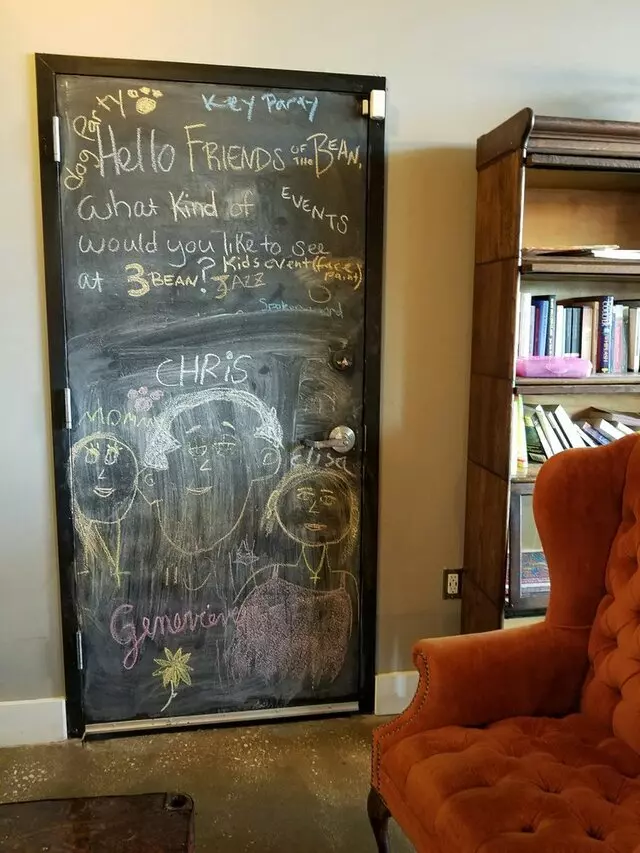 dog party
Key Party
Hello FRIENDS OF THE BEAN,
what Kind of EVENTS
would you like to see
at 3 BEAN?
Kids event (face paint)
JAZZ
Spoken word
CHRiS
MOMM
elisa
Genevieve